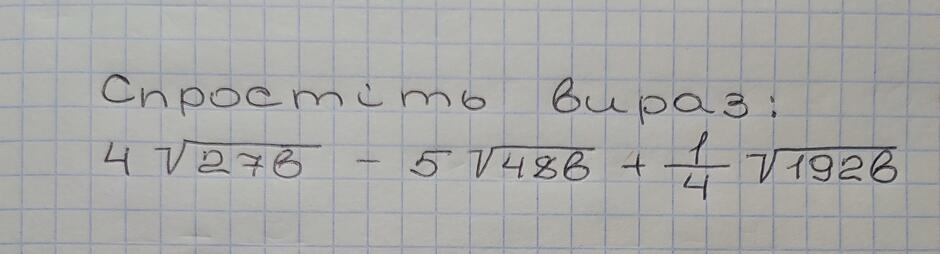 Спростіть вираз:
4√27в - 5√48в + 1/4 √192в